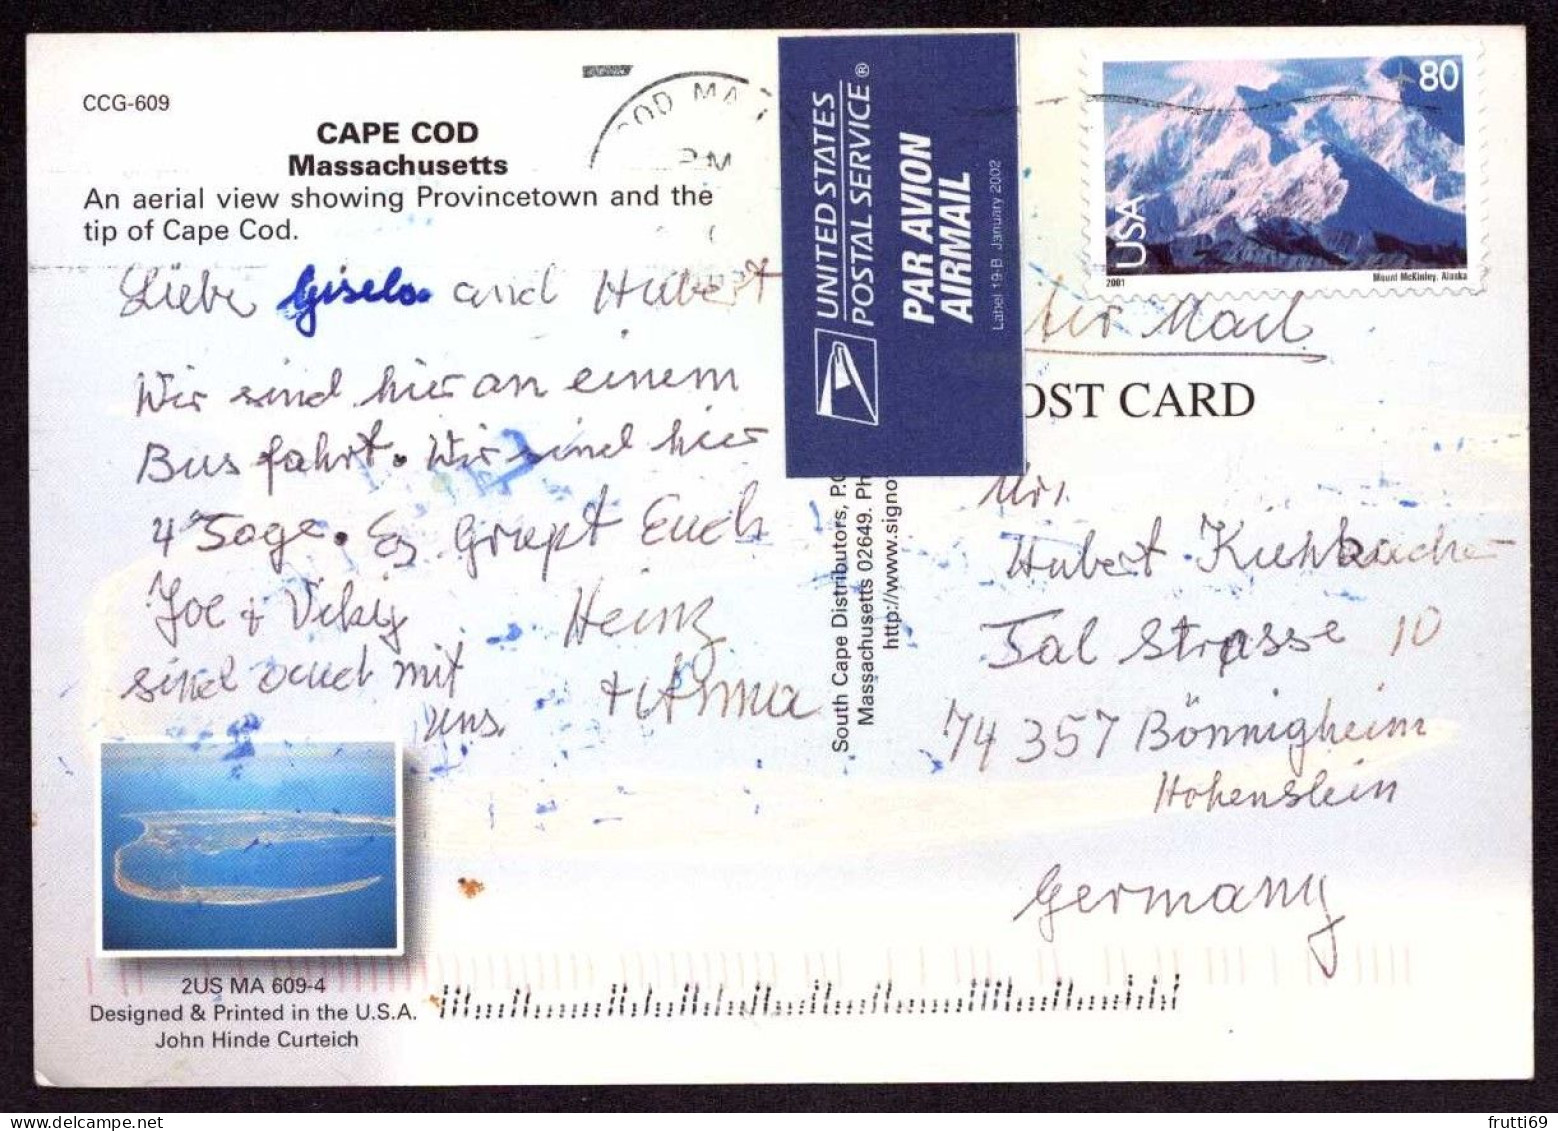 CCG-609
CAPE COD
Massachusetts
An aerial view showing Provincetown and the
tip of Cape Cod.
Liebe Gisela und Hubert
Wir sind hier an einem
Bus fahrt. Wir sind hier
4 Tage. Es Grüpt Euch
Joe + Vikiy Heinz
sind auch mit + Anna
uns.
2US MA 609-4
Designed & Printed in the U.S.A.
John Hinde Curteich
COD MA
PM
UNITED STATES
POSTAL SERVICE®
PAR AVION
AIRMAIL
Label 19-B January 2002
South Cape Distributors, P.
Massachusetts 02649. Ph
http://www.signo
80
USA
2001
Mount McKinley, Alaska
Air Mail
OST CARD
Mr.
Hubert
Tal Strasse 10
74 357 Bönnigheim
Hohenstein
Germany
frutti69